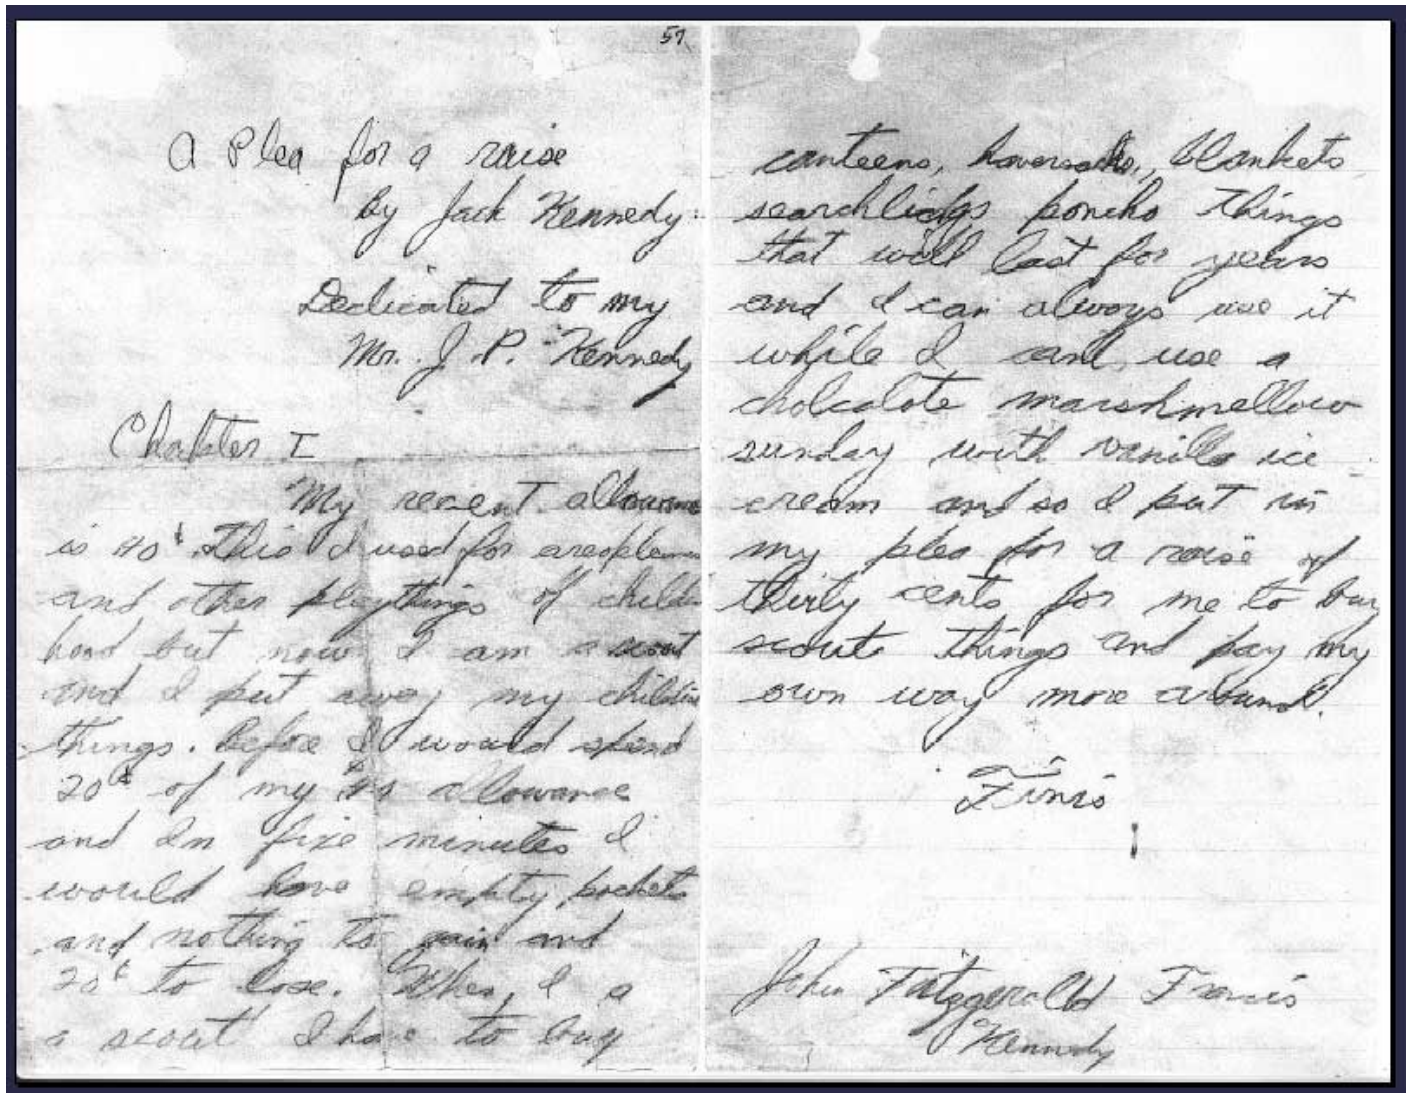 57
A Plea for a raise
By Jack Kennedy
Dedicated to my
Mr. J. P. Kennedy
Chapter I
My recent allowance
is 40¢. This I used for areoplanes
and other playthings of child-
hood but now I am a scout
and I put away my childish
things. Before I would spend
20¢ of my 40¢ allowance
and In five minutes I
would have empty pockets
and nothing to gain and
20¢ to lose. When I a
a scout I have to buy
canteens, haversacks, blankets
searchlidgs poncho things
that will last for years
and I can always use it
while I cant use a
cholcalote marshmellow
sunday with vanilla ice
cream and so I put in
my plea for a raise of
thirty cents for me to buy
scout things and pay my
own way more around.
Finis
John Fitzgerald Francis
Kennedy